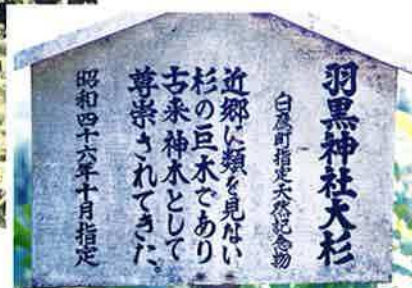 羽黒神社大杉
白鷹町指定天然記念物
近郷に類を見ない
杉の巨木であり
古来神木として
尊崇されてきた。
昭和四十六年十月指定